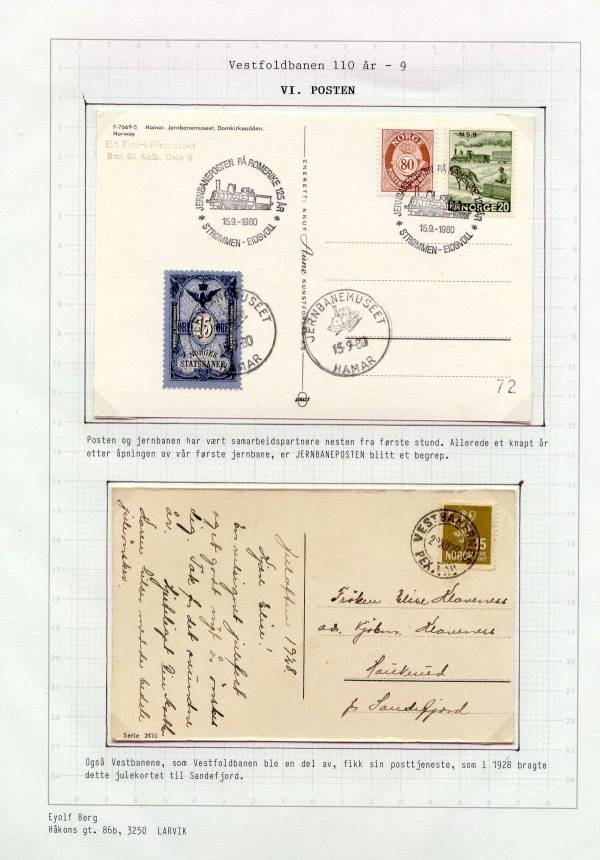 Vestfoldbanen 110 år - 9
VI. POSTEN
F-7669-5 Hamar. Jernbanemuseet, Domkirkeodden.
Norway
Et FSH-Produkt
Box 92 Kalb. Oslo 8
JERNBANEPOSTEN PÅ ROMERIKE 125 ÅR
15.9.-1980
STRØMMEN - EIDSVOLL
ENERETT: KNUT Aune KUNSTFORLAG
NORGE
80
N.S.B.
NORGE 20
JERNBANEPOSTEN PÅ ROMERIKE 125 ÅR
15.9.-1980
STRØMMEN - EIDSVOLL
ØRE 15 ØRE
NORGES
STATSBANER
JERNBANEMUSEET
HAMAR
JERNBANEMUSEET
15-9-80
HAMAR
72
Posten og jernbanen har vært samarbeidspartnere nesten fra første stund. Allerede et knapt år
etter åpningen av vår første jernbane, er JERNBANEPOSTEN blitt et begrep.
Juleaften 1928
Kjære Elise!
En velsignet julefest
og et godt nytt år ønskes
deg. Tak for det svundne
år. Hjerteligst Din
julønsker.
Serie 2410
VESTBANENE
PEX.
NORGE
15
Frøken Elise Klaveness
adr. Kjøbm. Klaveness
Haukerød
pr Sandefjord
Også Vestbanene, som Vestfoldbanen ble en del av, fikk sin posttjeneste, som i 1928 bragte
dette julekortet til Sandefjord.
Eyolf Berg
Håkons gt. 86b, 3250 LARVIK